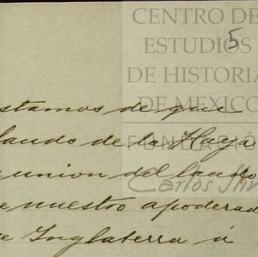 CENTRO DE
ESTUDIOS
DE HISTORIA
DE MEXICO
FUNDACIÓ
Carlos
5
stamos de que
laudo de la Haya
union del laudo
e nuestro apoderad
e Inglaterra ú